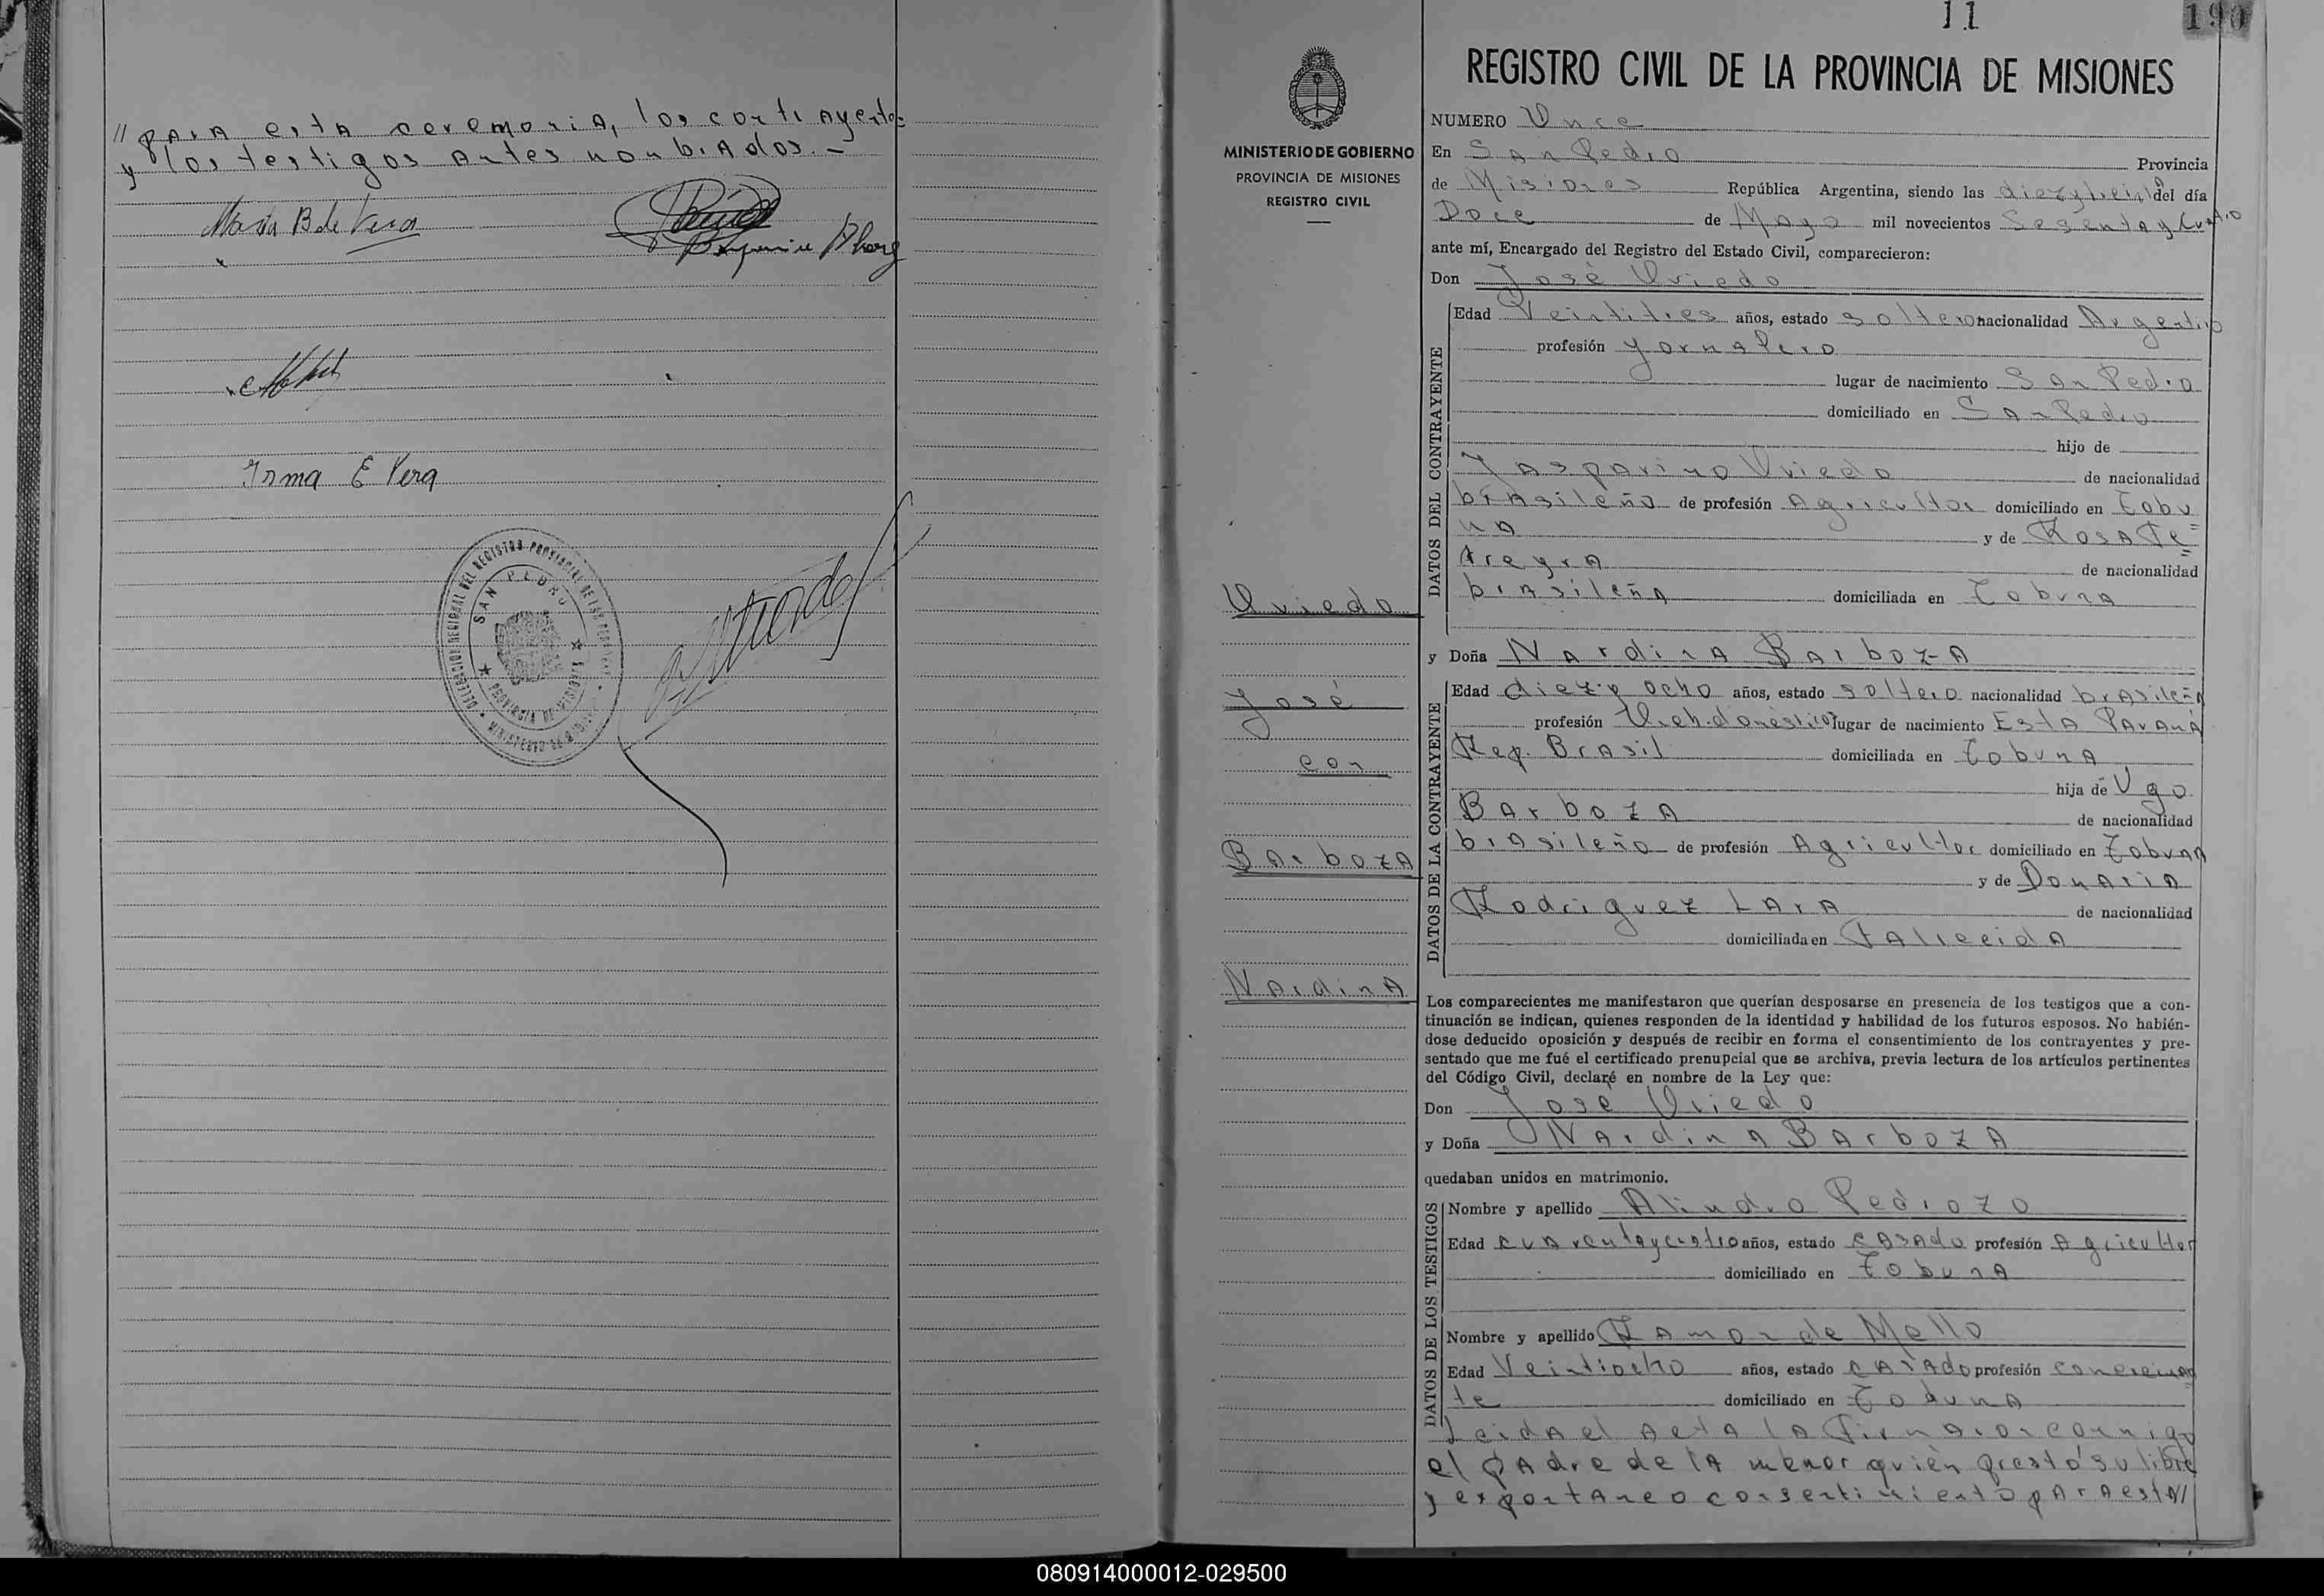 // para esta ceremonia, los contrayentes
y los testigos antes nombrados.-
Maria B de Vera
Irma E Vera
DELEGACION REGIONAL DEL REGISTRO PROVINCIAL DE LAS PERSONAS
SAN PEDRO
PROVINCIA DE MISIONES
MINISTERIO DE GOBIERNO
11
190
REGISTRO CIVIL DE LA PROVINCIA DE MISIONES
MINISTERIO DE GOBIERNO
PROVINCIA DE MISIONES
REGISTRO CIVIL
Oviedo
José
con
Barboza
Nardina
NUMERO Once
En San Pedro Provincia
de Misiones República Argentina, siendo las del día
Doce de Mayo mil novecientos Sesenta y Cuatro
ante mí, Encargado del Registro del Estado Civil, comparecieron:
Don José Oviedo
DATOS DEL CONTRAYENTE
Edad Veintitres años, estado soltero nacionalidad Argentino
profesión Jornalero
lugar de nacimiento San Pedro
domiciliado en San Pedro
hijo de
Jasparino Oviedo de nacionalidad
brasileño de profesión Agricultor domiciliado en Tobu
na y de Rosa Fe=
rreyra de nacionalidad
brasileña domiciliada en Tobuna
y Doña Nardina Barboza
DATOS DE LA CONTRAYENTE
Edad diez y ocho años, estado soltero nacionalidad brasileña
profesión Queh. domèstico lugar de nacimiento Esta Paraná
Rep. Brasil domiciliada en Tobuna
hija de Ugo
Barboza de nacionalidad
brasileño de profesión Agricultor domiciliado en Tobuna
y de Donaria
Rodriguez Lara de nacionalidad
domiciliada en Fallecida
Los comparecientes me manifestaron que querían desposarse en presencia de los testigos que a con-
tinuación se indican, quienes responden de la identidad y habilidad de los futuros esposos. No habién-
dose deducido oposición y después de recibir en forma el consentimiento de los contrayentes y pre-
sentado que me fué el certificado prenupcial que se archiva, previa lectura de los artículos pertinentes
del Código Civil, declaré en nombre de la Ley que:
Don José Oviedo
y Doña Nardina Barboza
quedaban unidos en matrimonio.
DATOS DE LOS TESTIGOS
Nombre y apellido Alindro Pedrozo
Edad cuarenta y cuatro años, estado casado profesión Agricultor
domiciliado en Tobuna
Nombre y apellido Ramon de Mello
Edad Veintiocho años, estado casado profesión comercian
te domiciliado en Tobuna
Leida el acta la firmaron conmigo
el padre de la menor quièn prestó su libre
y expontaneo consentimiento para esta//
080914000012-029500